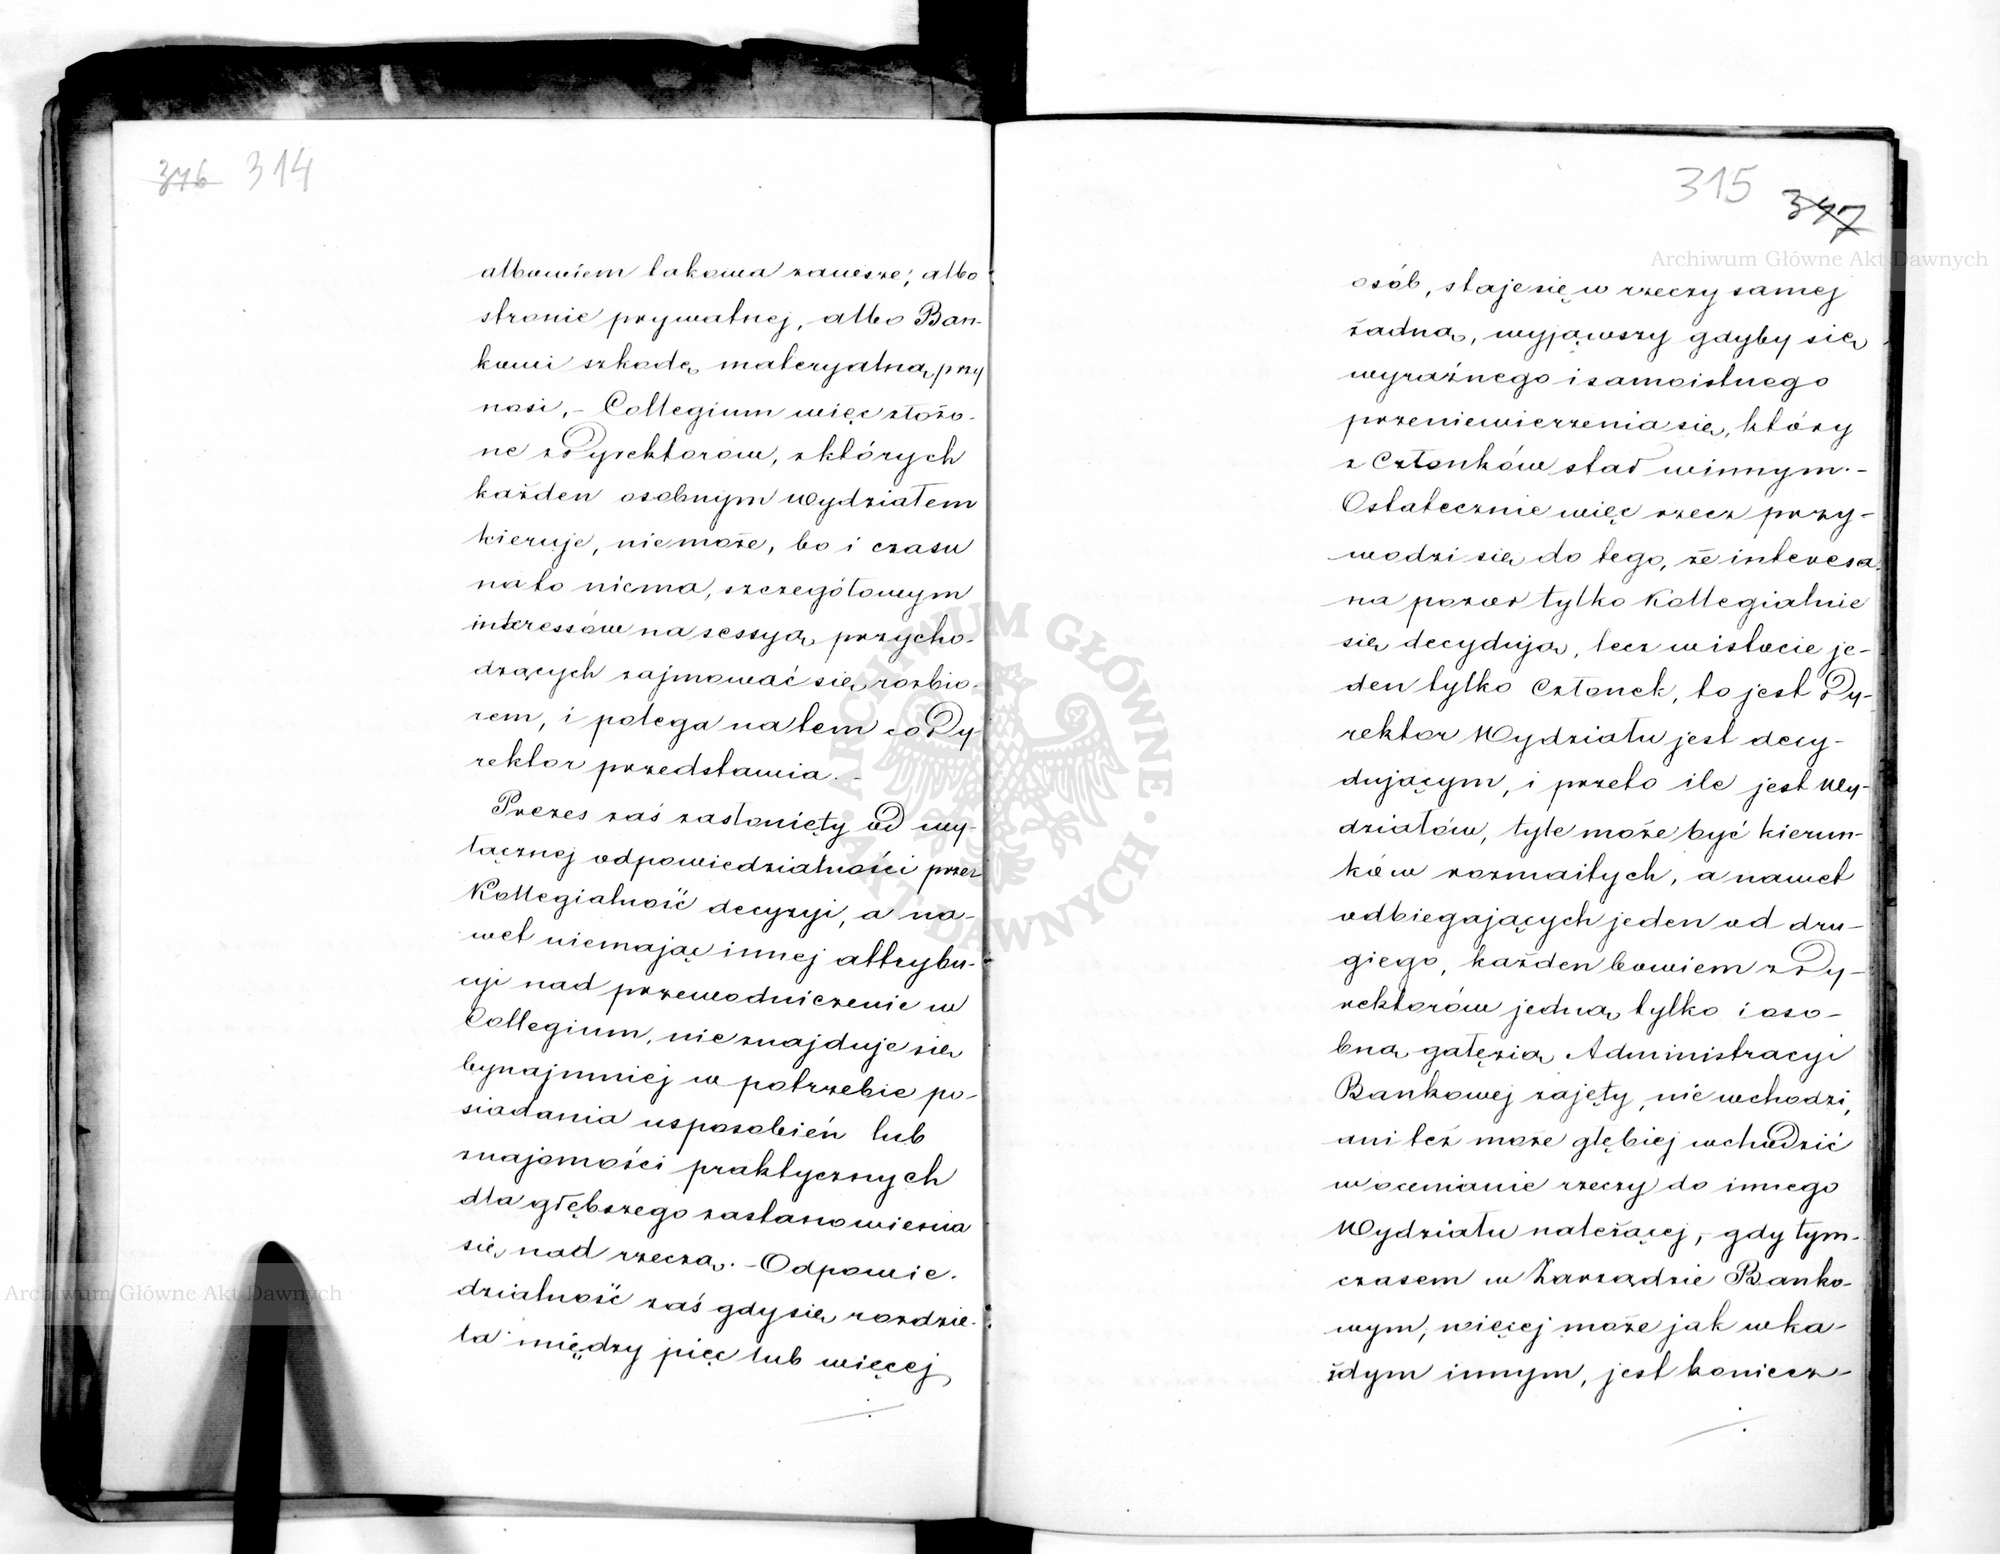 376 314
albowiem takowa zawsze, albo
stronie prywatnej, albo Ban-
kowi szkodę materyalną przy
nosi. – Collegium więc złożo-
ne z Dyrektorów, z których
każden osobnym Wydziałem
kieruje, niemoże, bo i czasu
na to niema, szczegółowym
interessów na sessyą przycho-
dzących zajmować się rozbio-
rem, i polega na tem co Dy-
rektor przedstawia. –
Prezes zaś zasłonięty od wy-
łącznej odpowiedzialności przez
Kollegialność decyzyi, a na-
wet niemając innej attrybu-
cyi nad przewodniczenie w
Collegium, nie znajduje się
bynajmniej w potrzebie po-
siadania usposobień lub
znajomości praktycznych
dla głębszego zastanowienia
się nad rzeczą. – Odpowie-
dzialność zaś gdy się rozdzie-
la między pięć lub więcej
315 317
osób, staje się w rzeczy samej
żadną, wyjąwszy gdyby się
wyraźnego i samoistnego
przeniewierzenia się, który
z Członków stał winnym. –
Ostatecznie więc rzecz przy-
wodzi się do tego, że interesa
na pozór tylko Kollegialnie
się decydują, lecz w istocie je-
den tylko Członek, to jest Dy-
rektor Wydziału jest decy-
dującym, i przeto ile jest Wy-
działów, tyle może być kierun-
ków rozmaitych, a nawet
odbiegających jeden od dru-
giego, każden bowiem z Dy-
rektorów jedną tylko i oso-
bną gałęzią Administracyi
Bankowej zajęty, nie wchodzi,
ani też może głębiej wchodzić
w ocenianie rzeczy do innego
Wydziału należącej, gdy tym-
czasem w Zarządzie Banko-
wym, więcej może jak w ka-
żdym innym, jest koniecz-
Archiwum Główne Akt Dawnych
Archiwum Główne Akt Dawnych
ARCHIWUM GŁÓWNE AKT DAWNYCH